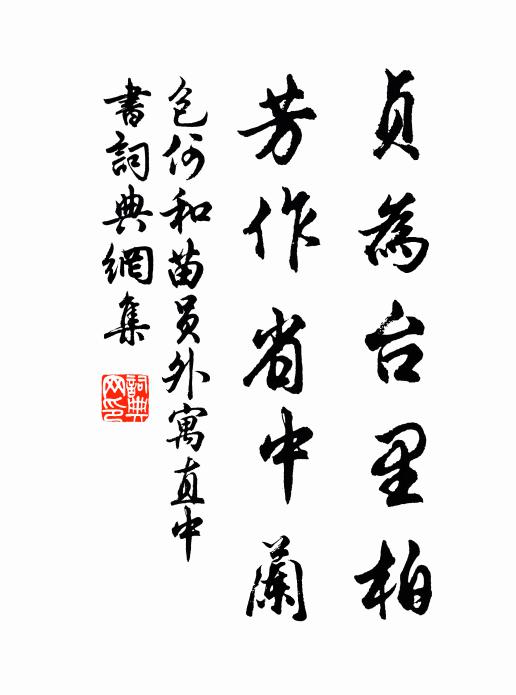 貞為台里柏
芳作省中蘭
包何和苗員外寓直中
書詞典網集
詞典网印